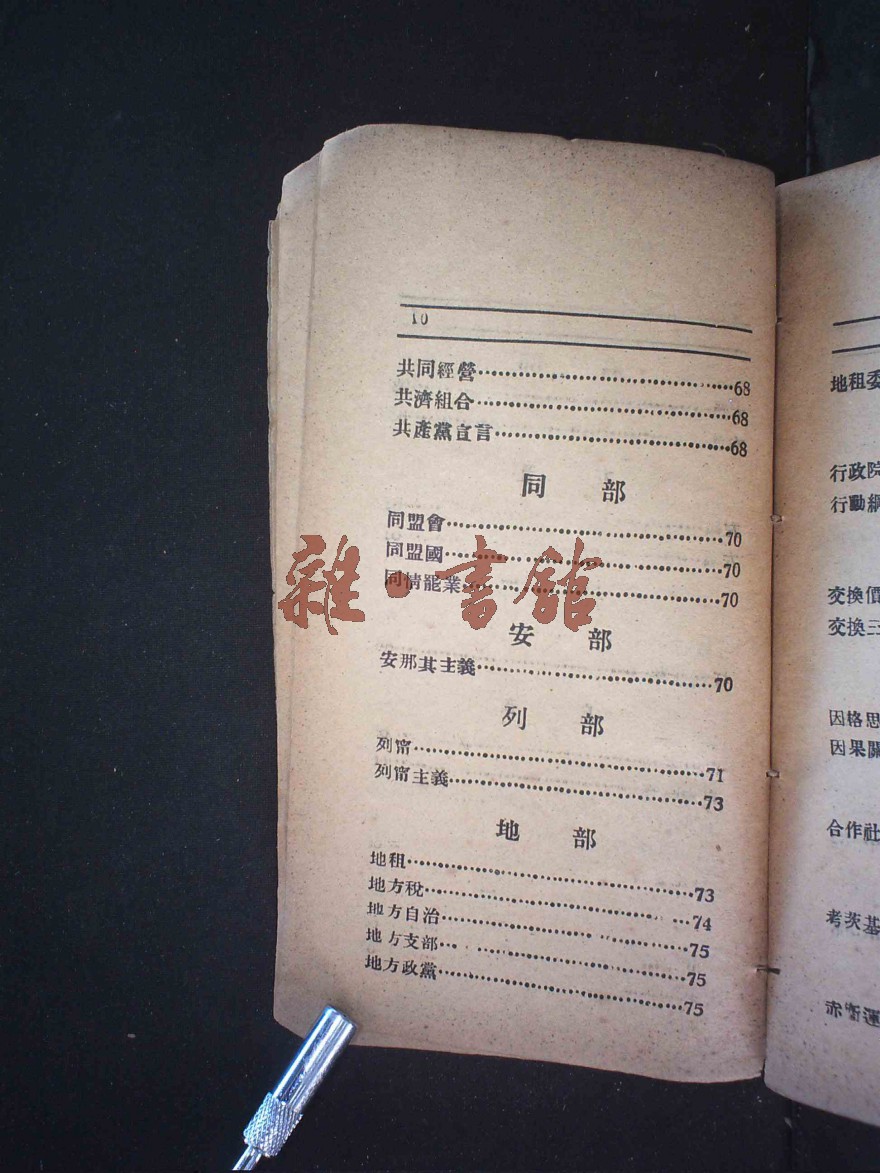 10
共同經營……68
共濟組合……68
共產黨宣言……68
同 部
同盟會……70
同盟國……70
同情罷業……70
安 部
安那其主義……70
列 部
列甯……71
列甯主義……73
地 部
地租……73
地方稅……74
地方自治……75
地方支部……75
地方政黨……75
雜·書館
地租委
行政院
行動綱
交換價
交換三
因格思
因果關
合作社
考茨基
赤衛運